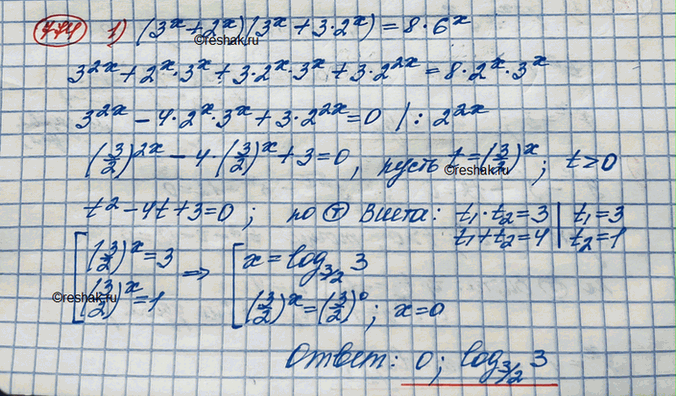 774 1) (3^x + 2^x)(3^x + 3·2^x) = 8·6^x
©reshak.ru
3^2x + 2^x·3^x + 3·2^x·3^x + 3·2^2x = 8·2^x·3^x
3^2x − 4·2^x·3^x + 3·2^2x = 0 | : 2^2x
(3/2)^2x − 4·(3/2)^x + 3 = 0, пусть t = (3/2)^x; t > 0
©reshak.ru
t² − 4t + 3 = 0; по Т Виета: t₁·t₂ = 3 | t₁ = 3
t₁ + t₂ = 4 | t₂ = 1
[ (3/2)^x = 3 ⇒ [ x = log_3/2 3
(3/2)^x = 1 (3/2)^x = (3/2)^0; x = 0
©reshak.ru
Ответ: 0; log_3/2 3